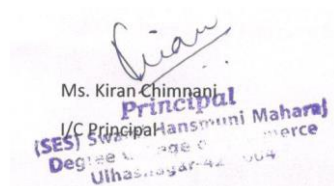 Kiran
Ms. Kiran Chimnani
Principal
I/C Principal
(SES) Swami Hansmuni Maharaj
Degree College of Commerce
Ulhasnagar-421 004